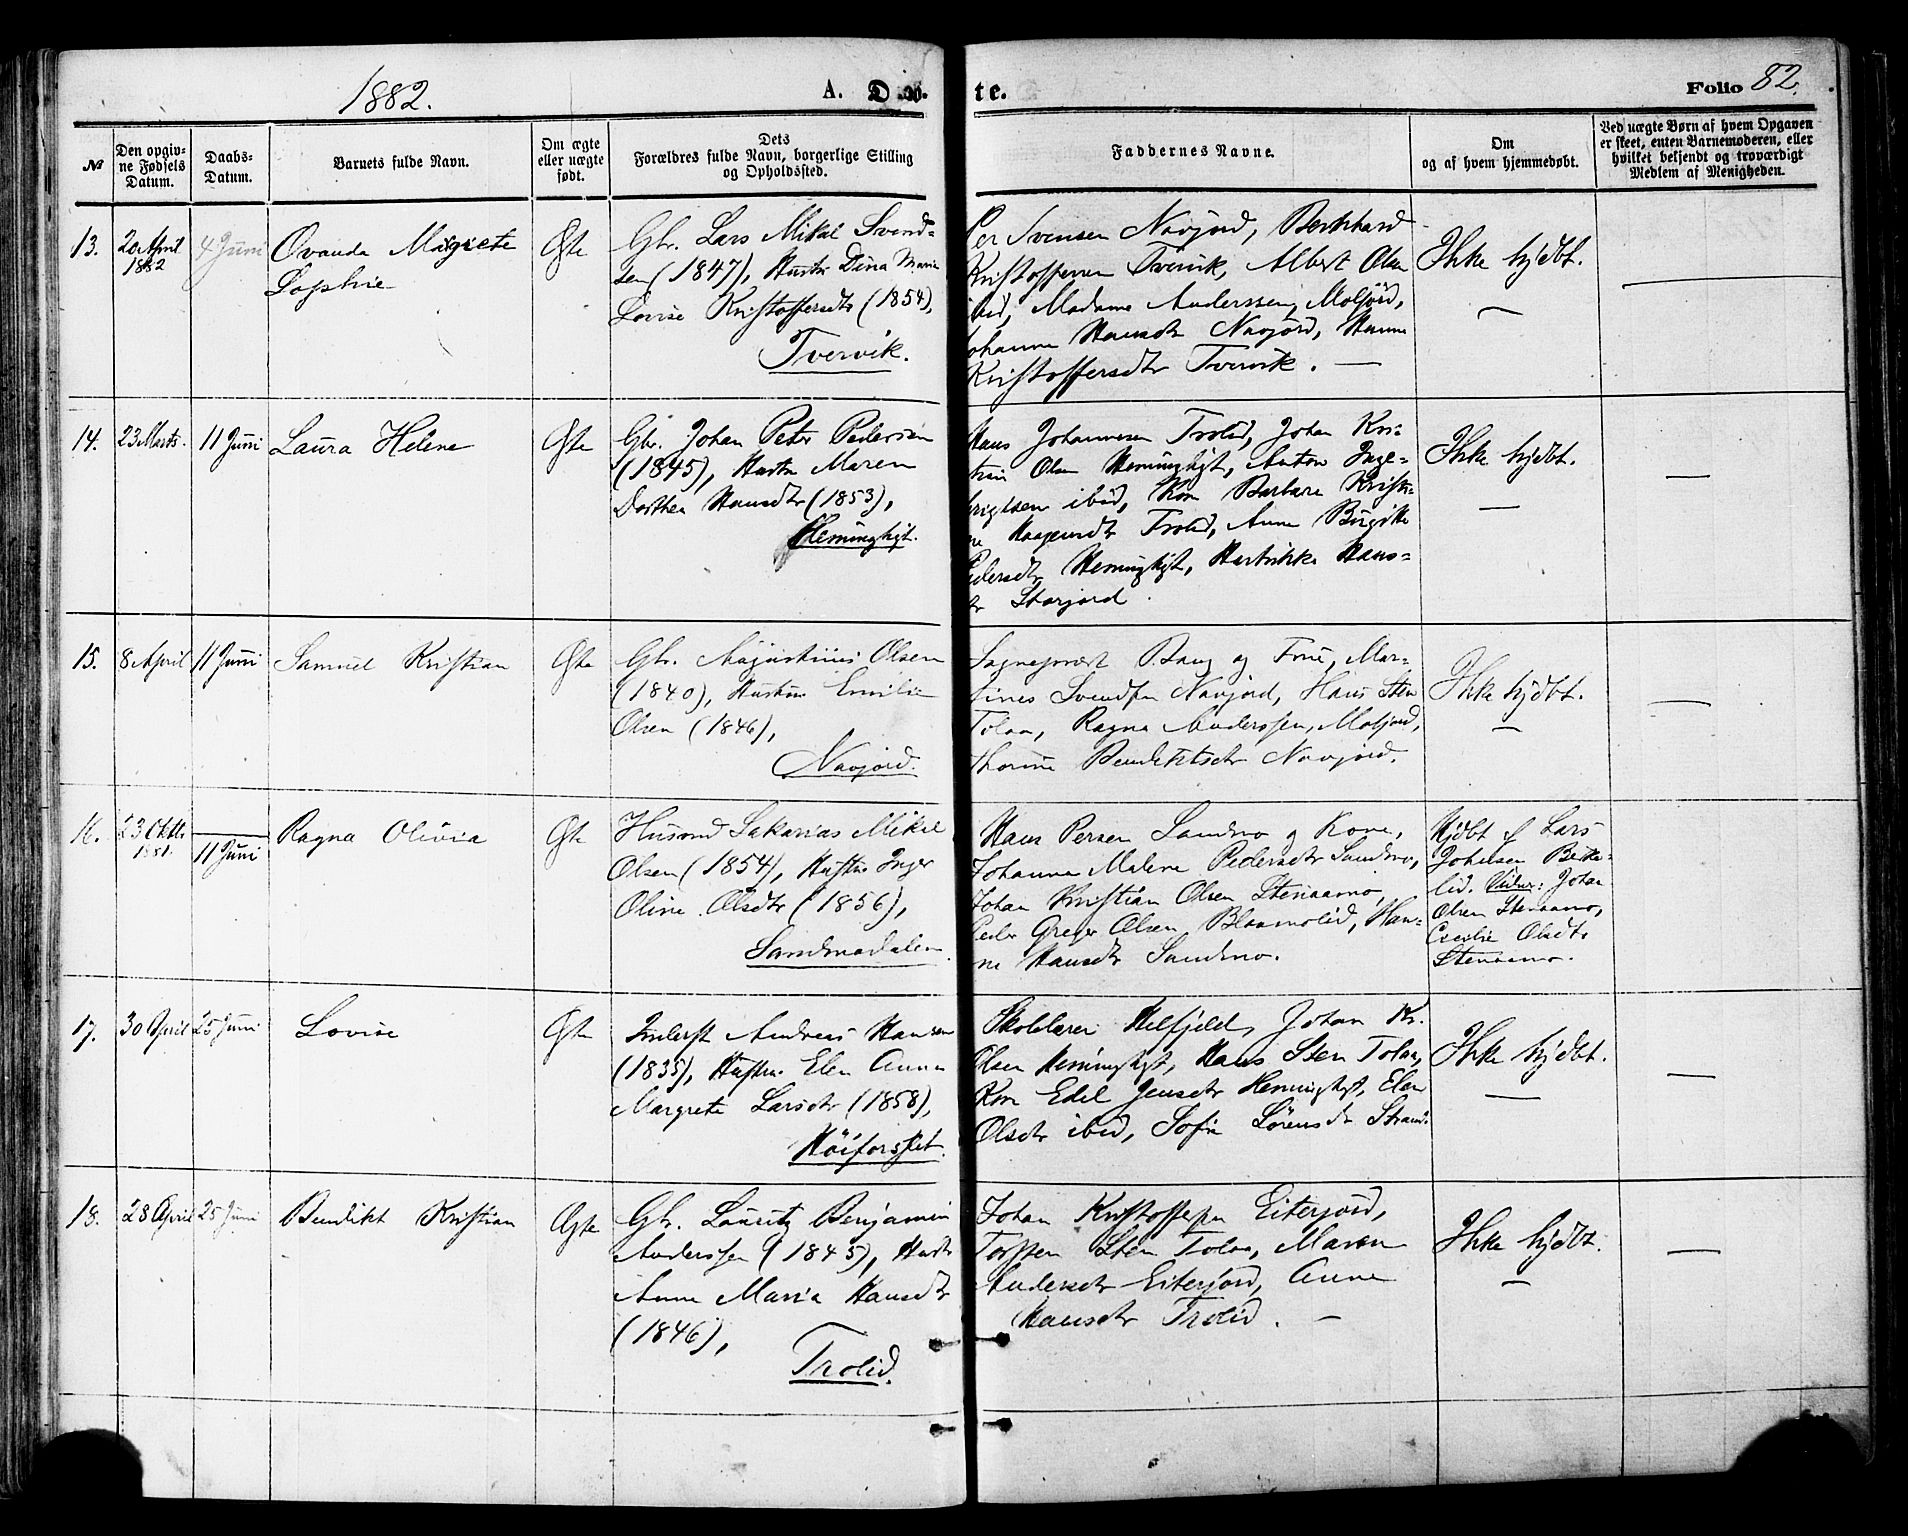 1882.
A. Døbte.
Folio 82.
№
Den opgiv-
ne Fødsels
Datum.
Daabs-
Datum.
Barnets fulde Navn.
Om ægte
eller uægte
født.
Dets
Forældres fulde Navn, borgerlige Stilling
og Opholdssted.
Faddernes Navne.
Om
og af hvem hjemmedøbt.
Ved uægte Børn af hvem Opgaven
er skeet, enten Barnemoderen, eller
hvilket bekjendt og troværdigt
Medlem af Menigheden.
13.
20 April
1882
4 Juni
Ovanda Magrete
Sophie
Ægte
Gbr. Lars Mikal Svend-
sen (1847), Hustr Dina Marie
Lovise Kristoffersdtr (1854),
Tvervik.
Per Svensen Navjord, Bernhard
Kristoffersen Tvervik, Albert Olsen
ibid, Madame Anderssen, Moljord,
Johanna Hansdtr Navjord, Hanna
Kristoffersdtr Tvervik. —
Ikke hjdbt.
—
14.
23 Marts.
11 Juni
Laura Helene
Ægte
Gbr. Johan Peter Pedersen
(1845), Hustr Maren
Dorthea Hansdtr (1853),
Hemingligt.
Hans Johannesen Trolid, Johan Kri-
stian Olsen Hemingligt, Anton Inge-
brigtsen ibid, Kon Barbara Kristi-
ne Haagensdtr Trolid, Anne Birgitte
Pedersdtr Hemingligt, Hartvikka Hans-
dtr Storjord.
Ikke hjdbt.
—
15.
8 April
11 Juni
Samuel Kristian
Ægte
Gbr. Augustinus Olsen
(1840), Hustru Emilie
Olsen (1846),
Navjord.
Sogneprest Bang og Frue, Mar-
tines Svendsen Navjord, Hans Sten
Tolaa, Ragna Anderssen, Moljord,
Thorine Bendiktsdtr Navjord.
Ikke hjdbt.
—
16.
23 Oktbr.
1881.
11 Juni
Ragna Olivia
Ægte
Husmd Sakarias Mikal
Olsen (1854), Hustru Inger
Oline Olsdtr (1856),
Sandmodalen.
Hans Persen Sandmo og Kone,
Johanna Malene Pedersdtr Sandmo,
Johan Kristian Olsen Stenaamo,
Peder Greger Olsen Blaamolid, Han-
ne Hansdtr Sandmo.
Hjdbt af Lars
Johnsen Beike-
lid. Vidner: Johan
Olsen Stenaamo,
Cecilie Olsdtr
Stenaamo.
17.
30 April
25 Juni
Lovise
Ægte
Inderst Andreas Hansen
(1835), Hustru Elen Anna
Margrete Larsdtr (1858),
Høiforsslet.
Skolelærer Helfjeld, Johan Kr.
Olsen Hemingligt, Hans Sten Tolaa,
Kon Edel Jensdtr Hemingligt, Elen
Olsdtr ibid, Sofie Sørensdtr Strand.
Ikke hjdbt.
—
18.
28 April
25 Juni
Bendikt Kristian
Ægte
Gbr. Lauritz Benjamin
Anderssen (1845), Hustr
Anne Maria Hansdtr
(1846),
Trolid.
Johan Kristoffersen Eiterjord,
Torsten Sten Tolaa, Maren
Andersdtr Eiterjord, Anne
Hansdtr Trolid. —
Ikke hjdbt.
—